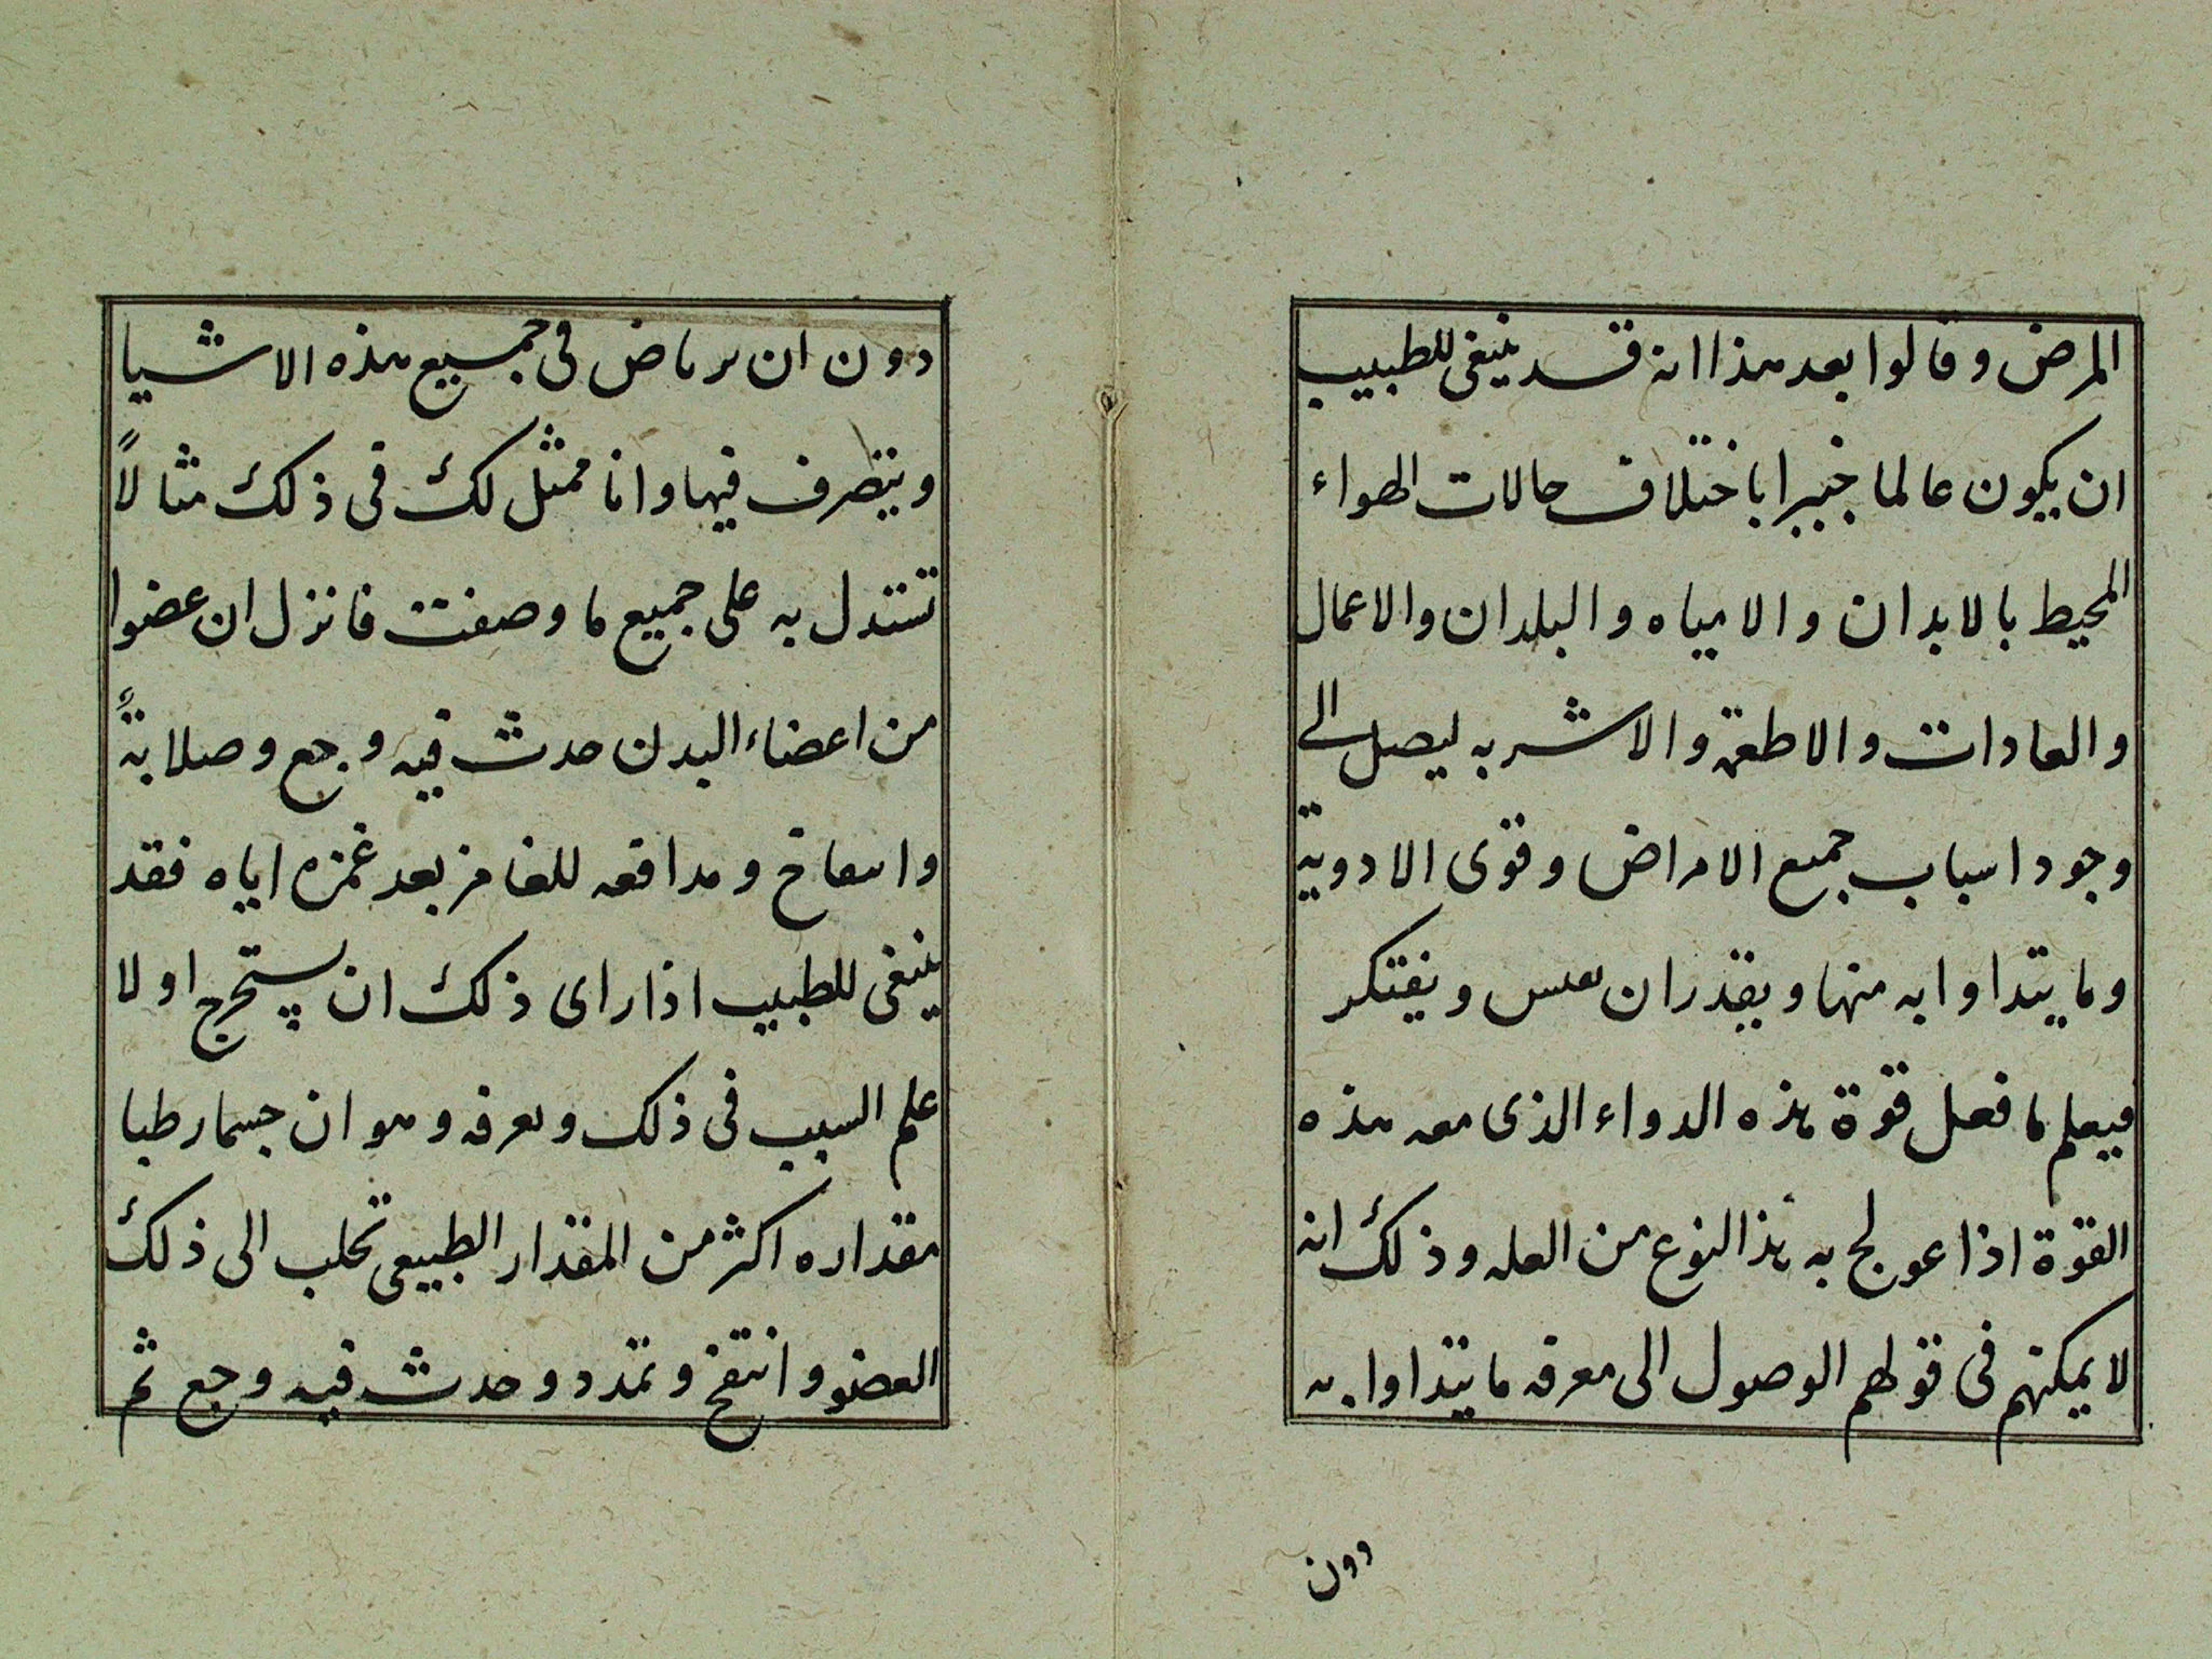 المرض و قالوا بعد هذا انه قد ينبغى للطبيب
ان يكون عالما خبيرا باختلاف حالات الهواء
المحيط بالابدان والامياه والبلدان والاعمال
والعادات والاطعمة والاشربه ليصل الى
وجود اسباب جميع الامراض وقوى الادوية
وما يتداوا به منها ويقدر ان يقيس ويفتكر
فيعلم ما فعل قوة هذه الدواء الذى معه هذه
القوة اذا عولج به هذا النوع من العله وذلك انه
لا يمكنهم فى قولهم الوصول الى معرفه ما يتداوا به
دون
دون ان يرتاض فى جميع هذه الاشيا
ويتصرف فيها وانا ممثل لك فى ذلك مثالاً
تستدل به على جميع ما وصفت فانزل ان عضوا
من اعضاء البدن حدث فيه وجع وصلابةً
وانتفاخ ومدافعه للغامز بعد غمزه اياه فقد
ينبغى للطبيب اذا راى ذلك ان يستخرج اولا
علم السبب فى ذلك ويعرفه وهو ان جسما رطبا
مقداره اكثر من المقدار الطبيعى تحلب الى ذلك
العضو وانتفخ وتمدد وحدث فيه وجع ثم